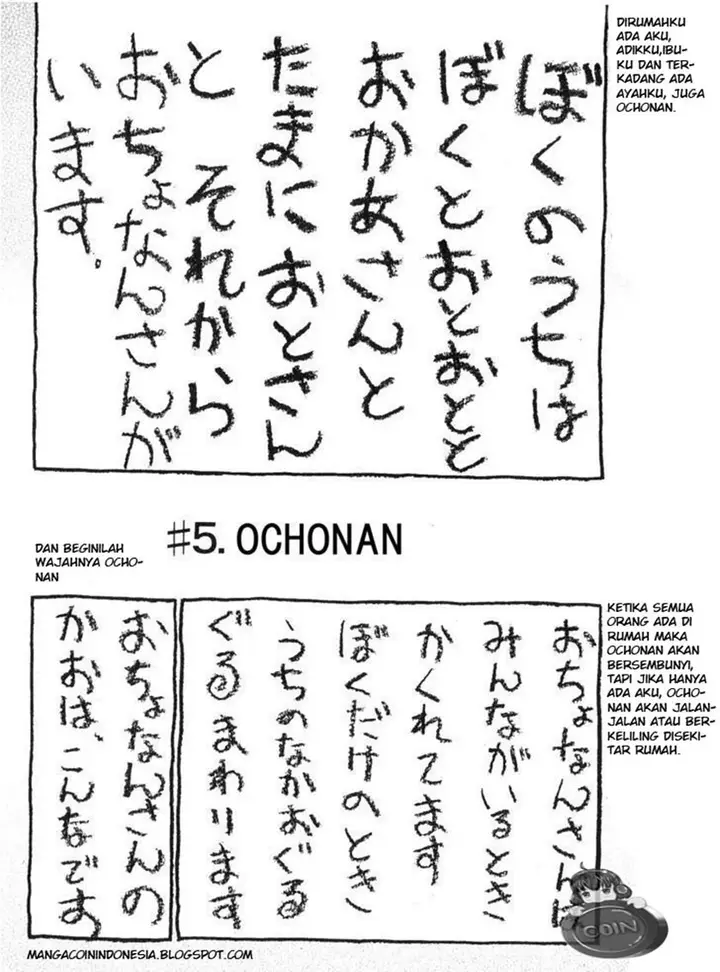 ぼくのうちは
ぼくとおとおとと
おかあさんと
たまにおとさん
と それから
おちょなんさんが
います。
DIRUMAHKU
ADA AKU,
ADIKKU,IBU-
KU DAN TER-
KADANG ADA
AYAHKU, JUGA
OCHONAN.
#5. OCHONAN
おちょなんさんは
みんながいるとき
かくれてます
ぼくだけのとき
うちのなかおぐる
ぐるまわります
KETIKA SEMUA
ORANG ADA DI
RUMAH MAKA
OCHONAN AKAN
BERSEMBUNYI,
TAPI JIKA HANYA
ADA AKU, OCHO-
NAN AKAN JALAN-
JALAN ATAU BER-
KELILING DISEKI-
TAR RUMAH.
おちょなんさんの
かおは、こんなです
DAN BEGINILAH
WAJAHNYA OCHO-
NAN
COIN
MANGACOININDONESIA.BLOGSPOT.COM